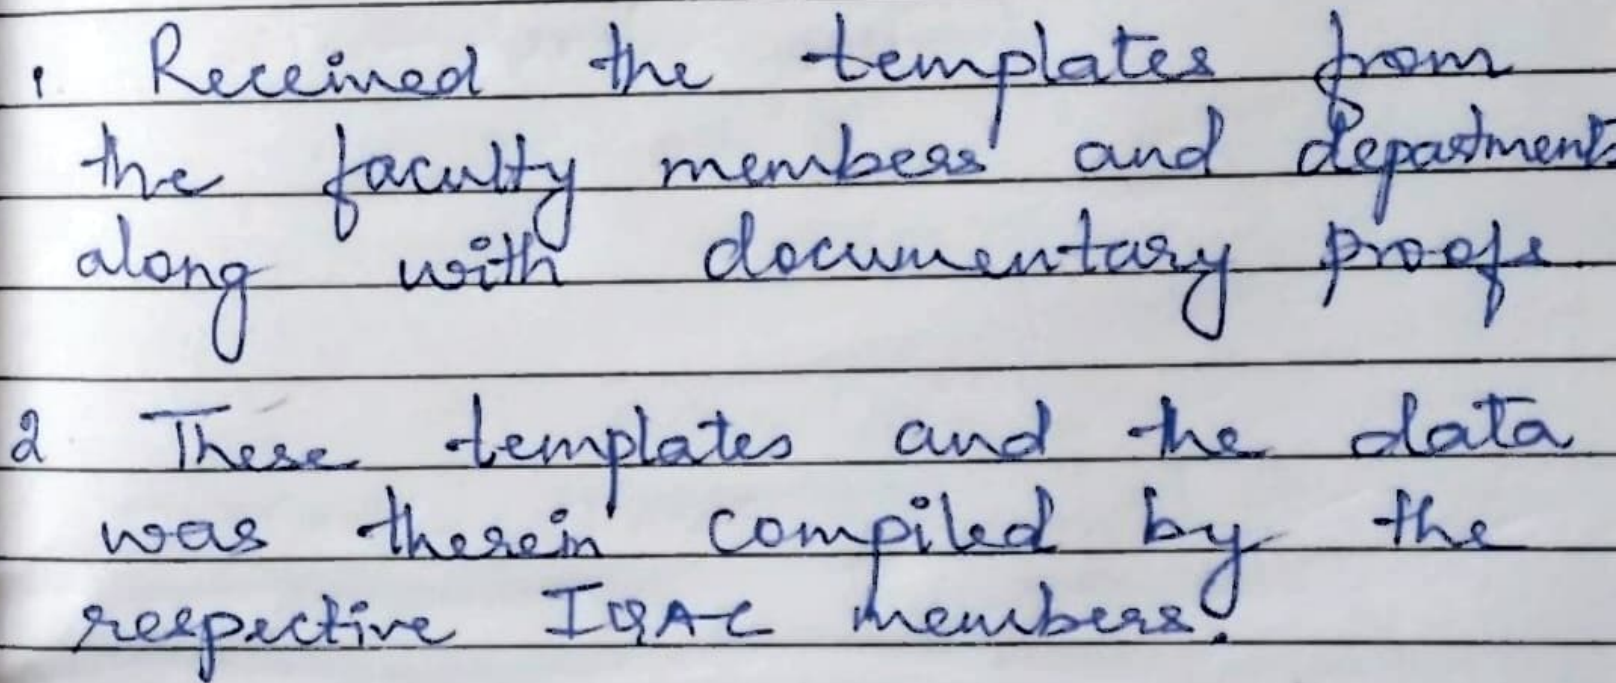 1. Received the templates from
the faculty members and departments
along with documentary proofs.
2 These templates and the data
was therein compiled by the
respective IQAC members.